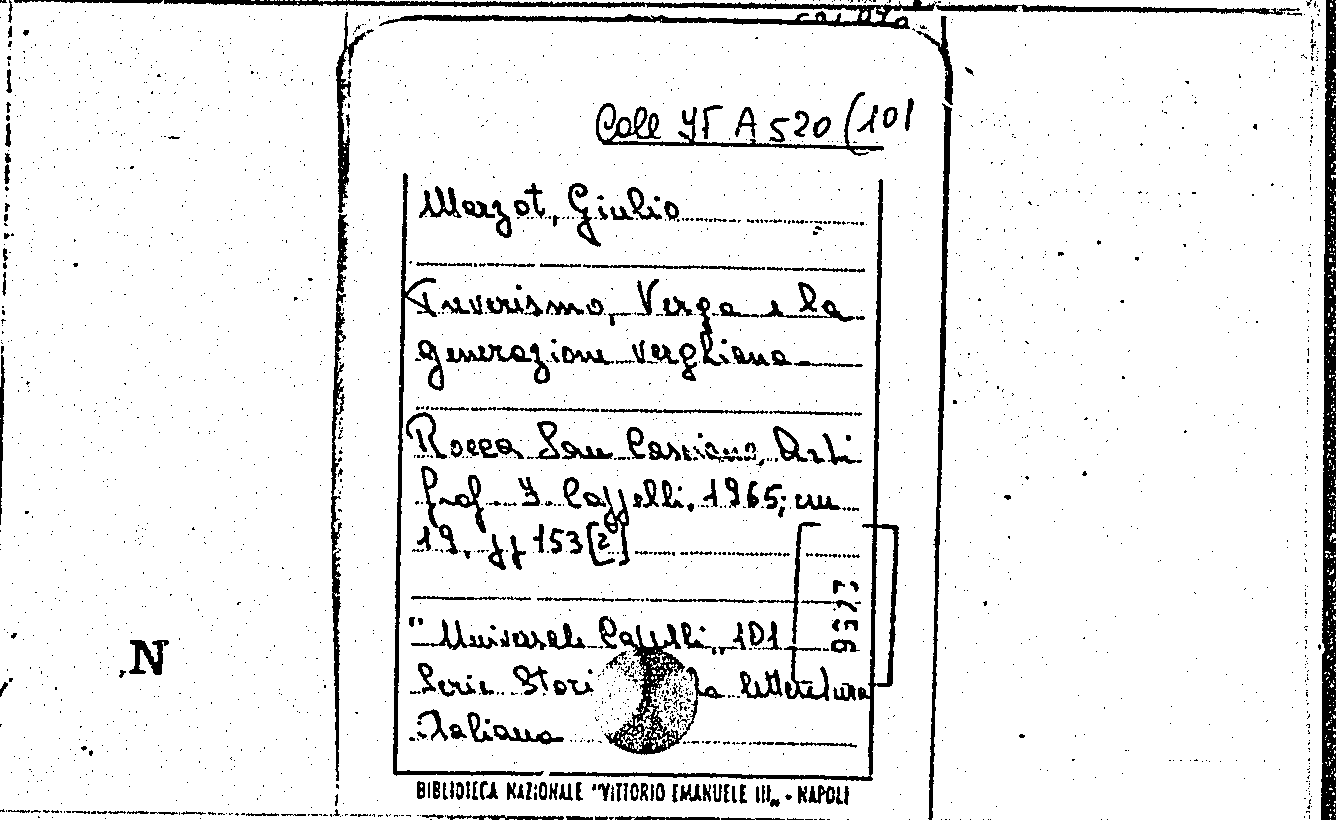 Coll YF A 520 (101
Marzot, Giulio
Preverismo, Verga e la
generazione verghiana
Rocca San Casciano, Arti
Graf. F. Cappelli, 1965; cm
19, pp 153[2]
"Universale Cappelli„ 101
Serie Stori la letteratura
Italiana
BIBLIOTECA NAZIONALE "VITTORIO EMANUELE III„ - NAPOLI
N